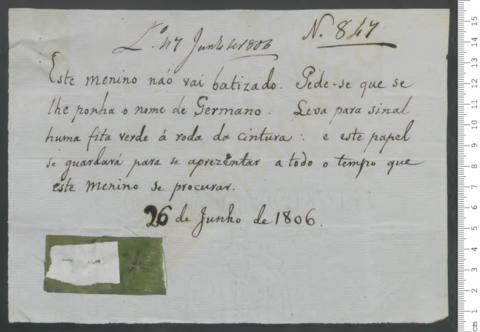 L.º 47 Junho de 1806
N. 847
Este menino não vai batizado. Pede-se que se
lhe ponha o nome de Germano. Leva para sinal
huma fita verde á roda da cintura: e este papel
se guardará para se aprezentar a todo o tempo que
este menino se procurar.
26 de Junho de 1806.